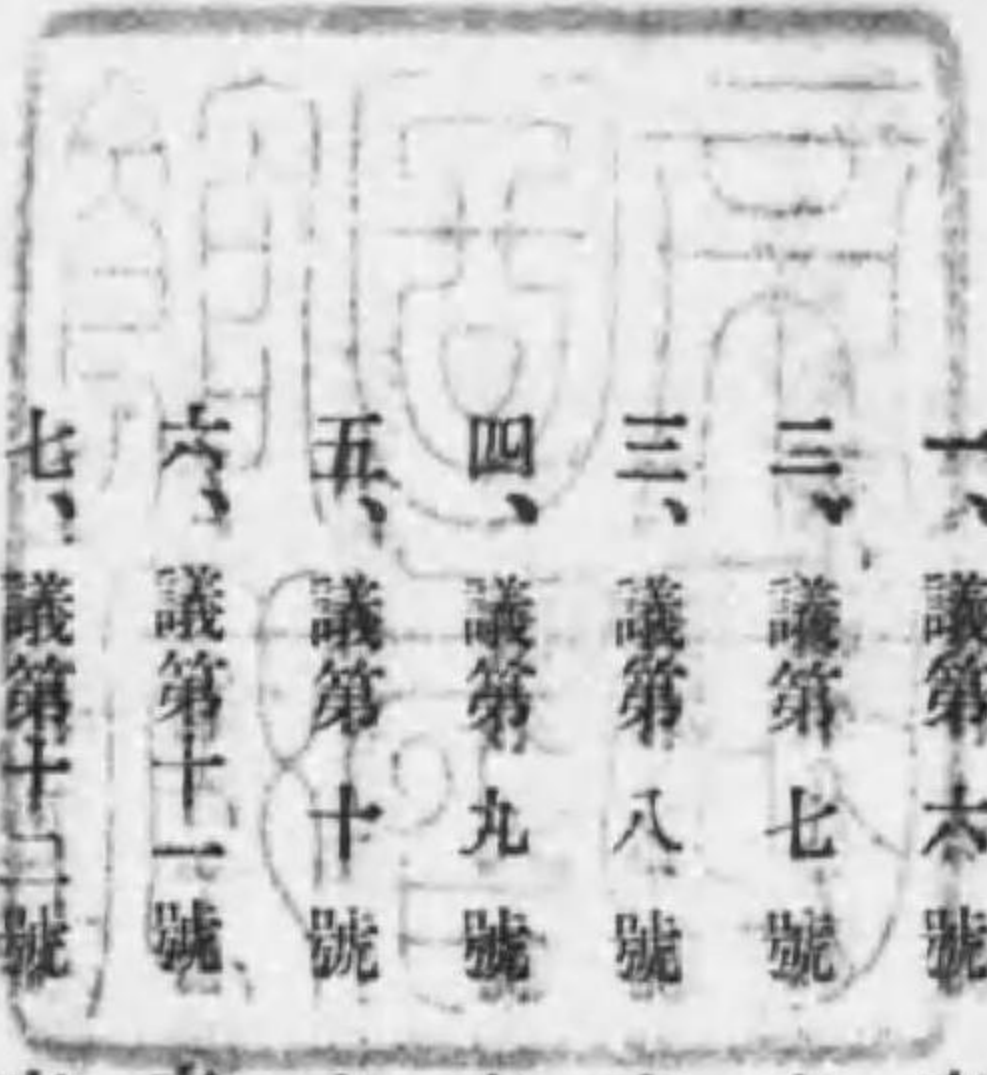 一、議第六號
二、議第七號
三、議第八號
四、議第九號
五、議第十號
六、議第十一號
七、議第十二號